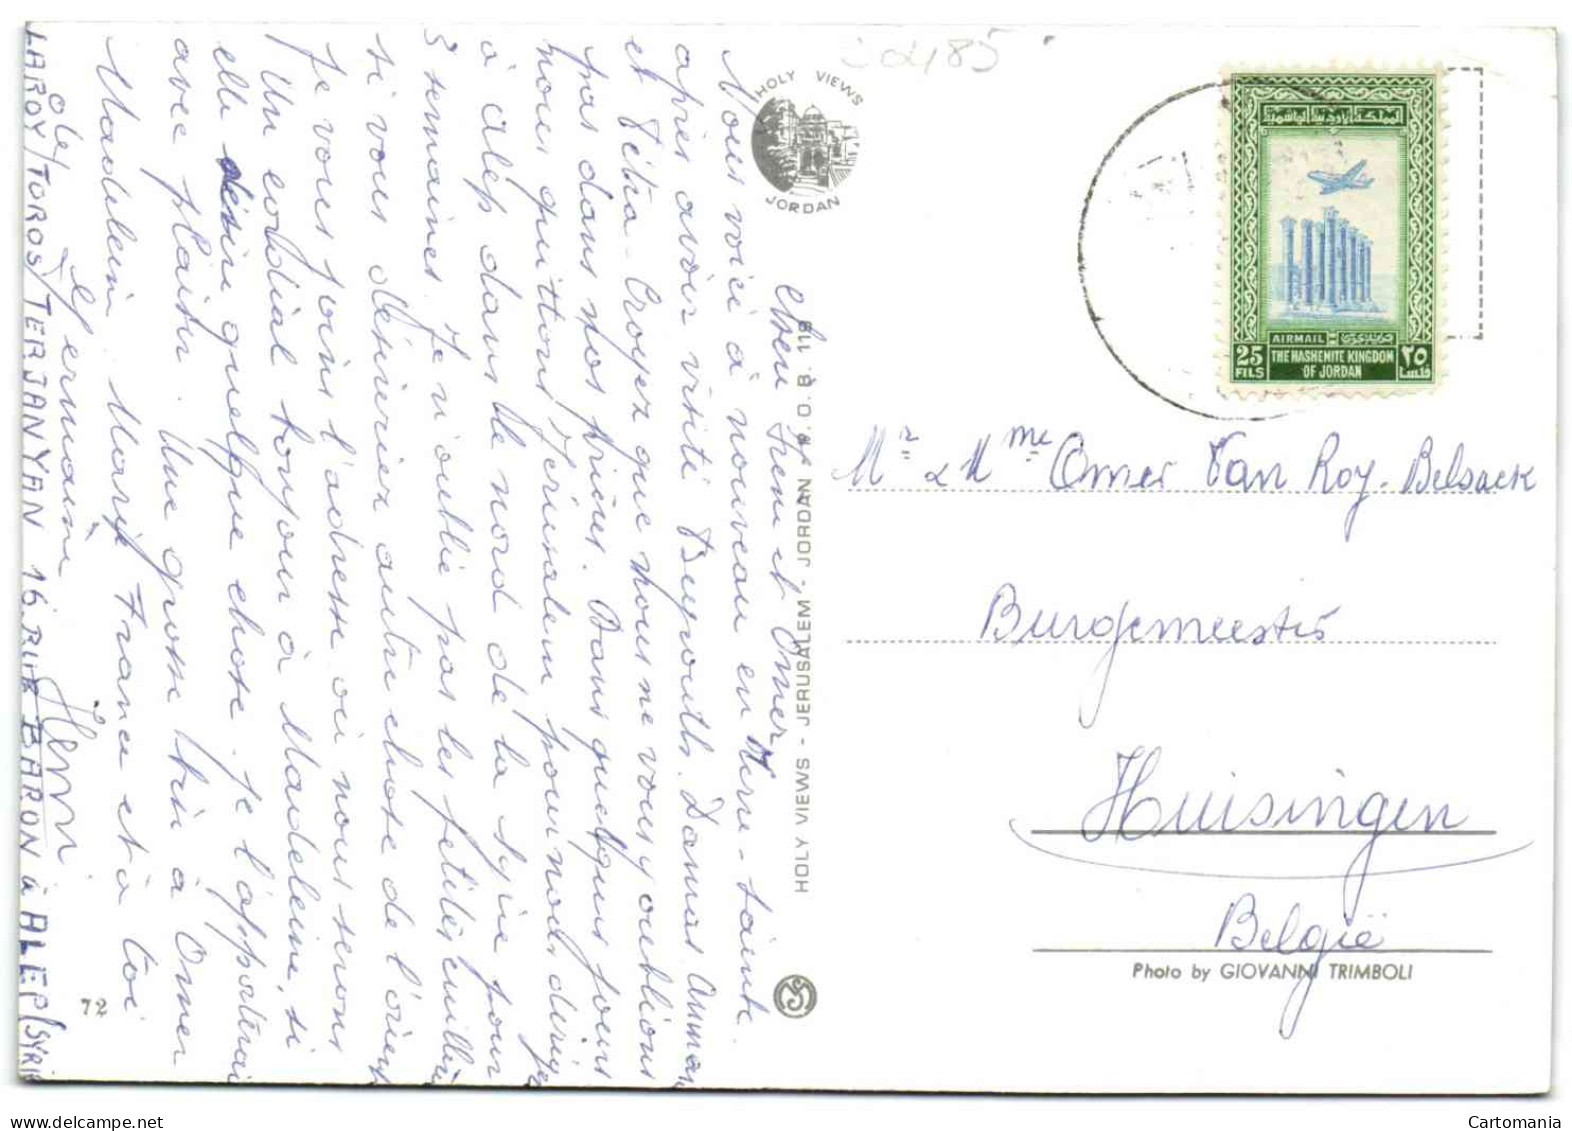 HOLY VIEWS
JORDAN
المملكة الاردنية الهاشمية
AIRMAIL
25 FILS
THE HASHEMITE KINGDOM
OF JORDAN
٢٥
فلسا
Mr & Mme Omer Van Roy-Belsack
Burgemeester
Huisingen
België
Photo by GIOVANNI TRIMBOLI
HOLY VIEWS - JERUSALEM - JORDAN P. O. B. 118
72
Chou Irene et Omer,
Nous voici à nouveau en Terre-Sainte
après avoir visité Beyrouth. Damas. Amman
et Pétra - Croyez que nous ne vous y oublions
pas dans nos prières. Dans quelques jours
nous quittons Jérusalem pour nous diriger
à alep dans le nord de la Syrie pour
3 semaines. Je n'oublie pas les petites cuillères
si vous désiriez autre chose de l'orient
je vous joins l'adresse où nous serons
Un cordial bonjour à Madeleine, si
elle désire quelque chose je l'apporterai
avec plaisir. Une grosse bise à Omer
Madelein Marie France et à toi
Germain
Henri
chez
LAROY/TOROS/TERJANYAN 16. RUE BARON à ALEP (SYRIE
Cartomania